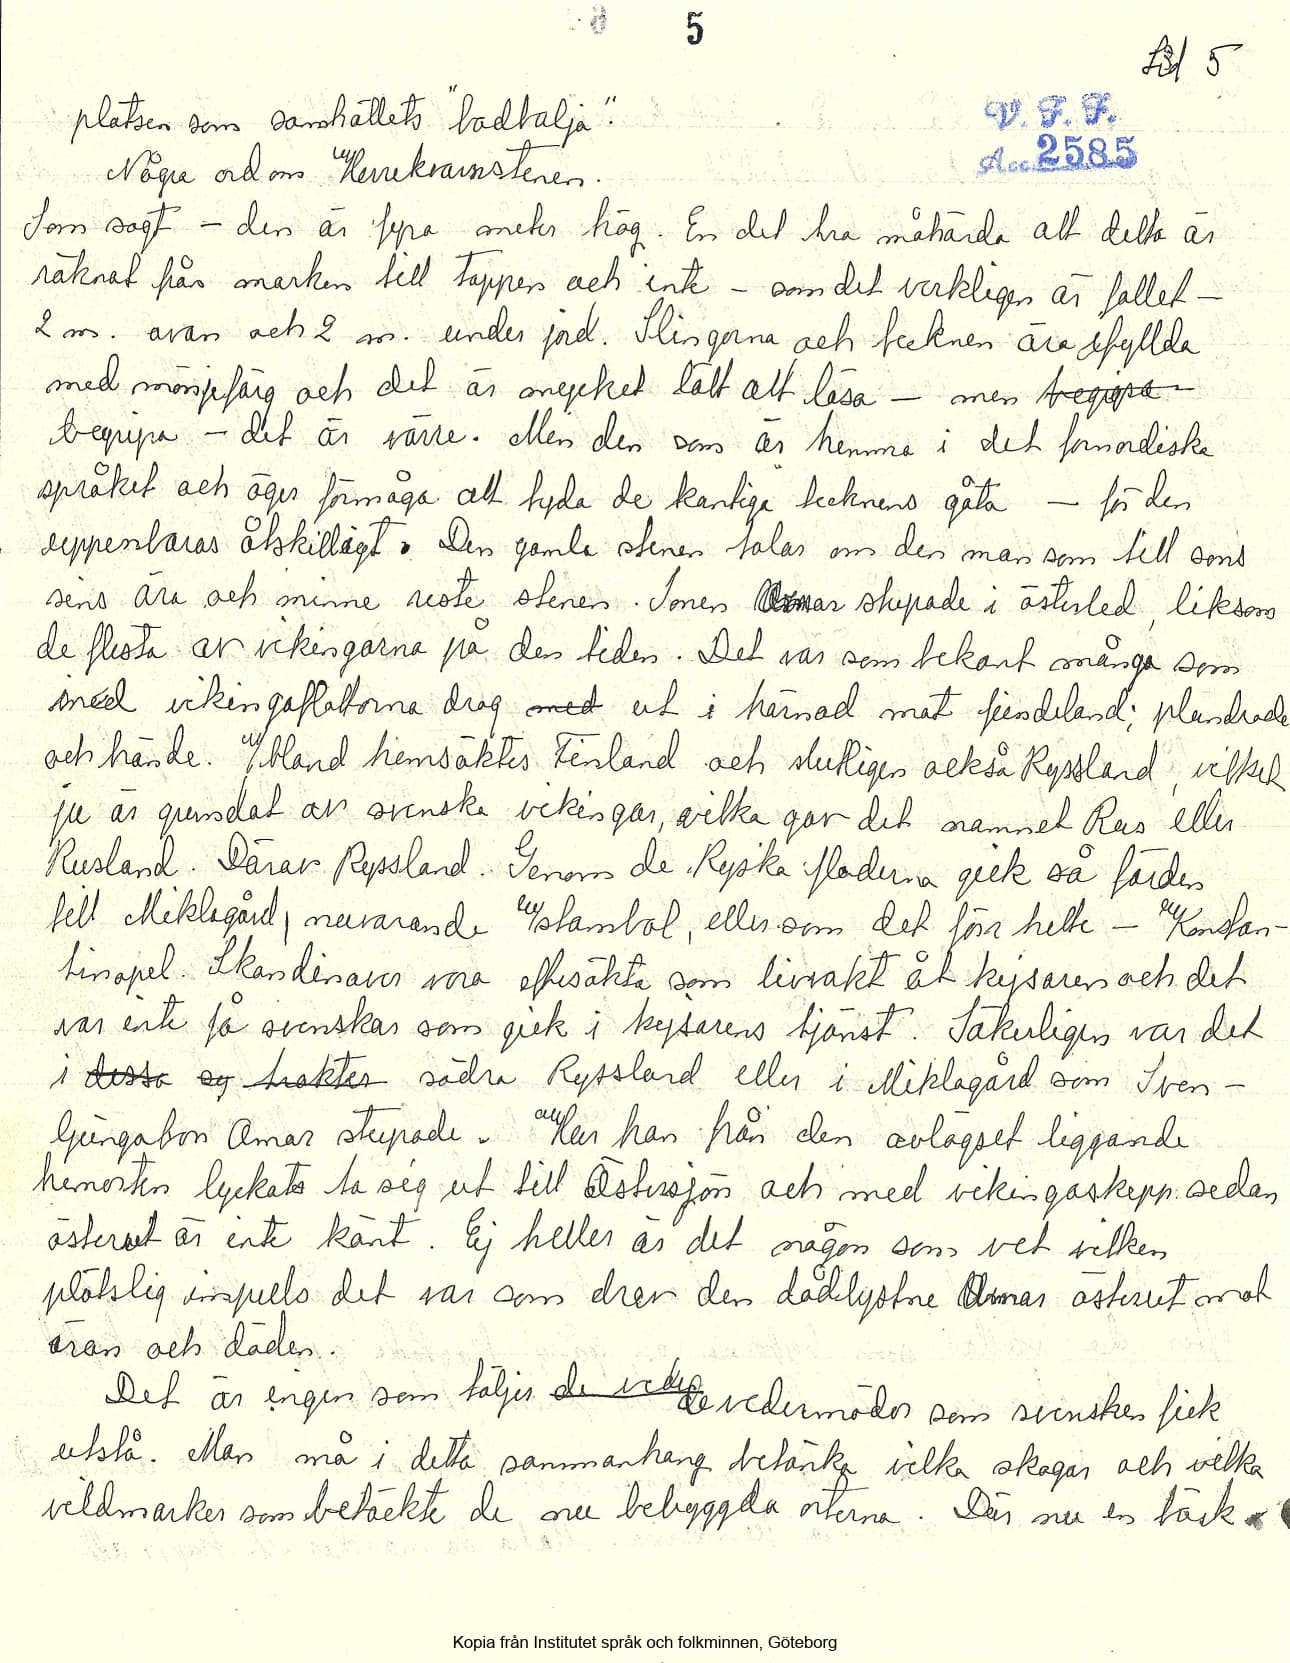 5
Sid 5
V. F. F.
Acc. 2585
platsen som samhällets "badbalja".
Några ord om Kverrekvarnstenen.
Som sagt – den är fyra meter hög. En del tro måhända att detta är
räknat från marken till toppen och inte – som det verkligen är fallet –
2 m. ovan och 2 m. under jord. Slingorna och tecknen äro ifyllda
med mönjefärg och det är mycket lätt att läsa – men begripa –
begripa – det är värre. Men den som är hemma i det fornordiska
språket och äger förmåga att tyda de kantiga tecknens gåta – för den
uppenbaras åtskilligt. Den gamla stenen talar om den man som till sons
sens ära och minne reste stenen. Sonen Omar stupade i österled, liksom
de flesta av vikingarna på den tiden. Det var som bekant många som
med vikingaflottorna drog med ut i härnad mot fiendeland; plundrade
och brände. Ibland hemsöktes Finland och slutligen också Ryssland, vilket
ju är grundat av svenska vikingar, vilka gav det namnet Ros eller
Rusland. Därav Ryssland. Genom de Ryska floderna gick så färden
till Miklagård, nuvarande Istambol, eller som det förr hette – Konstan-
tinopel. Skandinaver voro eftersökta som livvakt åt kejsaren och det
var inte få svenskar som gick i kejsarens tjänst. Säkerligen var det
i dessa sy trakter södra Ryssland eller i Miklagård som Sven-
ljungabon Omar stupade. Hur han från den avlägset liggande
hemorten lyckats ta sig ut till Östersjön och med vikingaskepp sedan
österut är inte känt. Ej heller är det någon som vet vilken
plötslig impuls det var som drev den dådlystne Omar österut mot
äran och döden.
Det är ingen som täljer de veder de vedermödor som svensken fick
utstå. Man må i detta sammanhang betänka vilka skogar och vilka
vildmarker som betäckte de nu bebyggda orterna. Där nu en täck
Kopia från Institutet språk och folkminnen, Göteborg